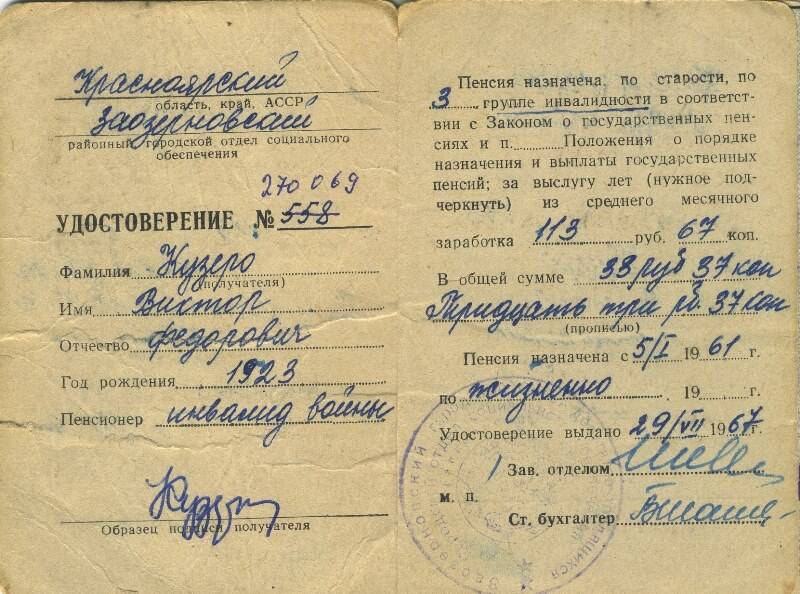 Красноярский
область, край, АССР
Заозерновский
районный городской отдел социального
обеспечения
270069
УДОСТОВЕРЕНИЕ № 558
Фамилия Кузеро
(получателя)
Имя Виктор
Отчество Федорович
Год рождения 1923
Пенсионер инвалид войны
Образец подписи получателя
Пенсия назначена, по старости, по
3 группе инвалидности в соответст-
вии с Законом о государственных пен-
сиях и п. Положения о порядке
назначения и выплаты государственных
пенсий; за выслугу лет (нужное под-
черкнуть) из среднего месячного
заработка 113 руб. 67 коп.
В общей сумме 33 руб 37 коп
Тридцать три рб. 37 коп
(прописью)
Пенсия назначена с 5/I 1961 г.
по жизненно 19 г.
Удостоверение выдано 29/VII 1967 г.
Зав. отделом
м. п.
Ст. бухгалтер